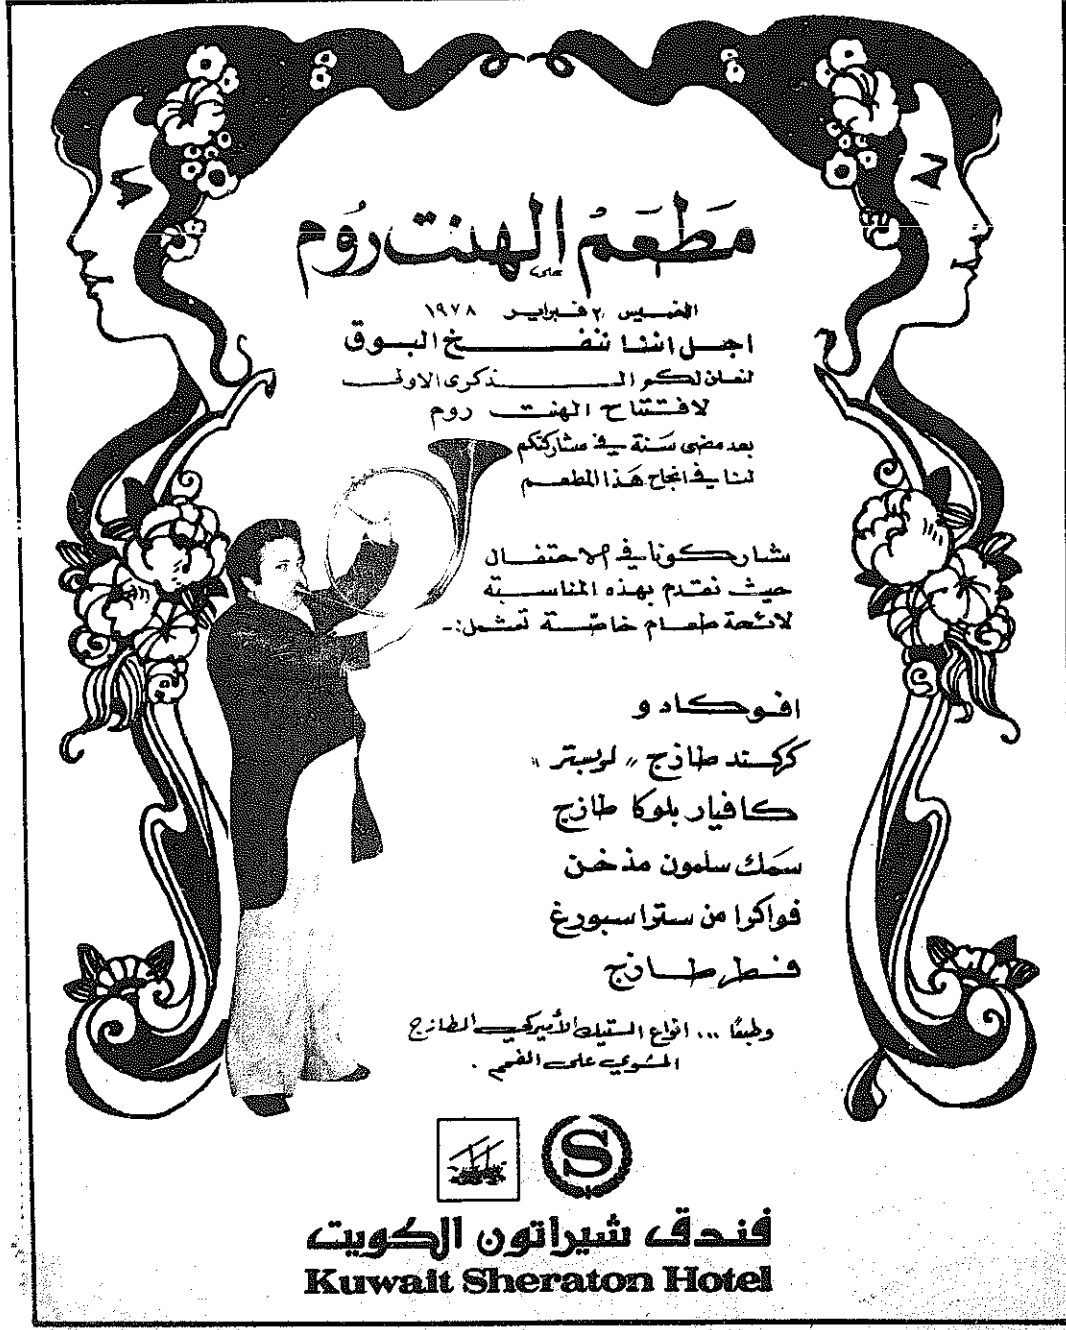 مَطعَمُ الهنت رُوم
الخميس ٢ فبراير ١٩٧٨
اجل اننا ننفخ البوق
لنعلن لكم الذكرى الاولى
لافتتاح الهنت روم
بعد مضى سَنة في مشاركتكم
لنا في انجاح هَذا المطعم
شاركونا في الاحتفال
حيث نقدم بهذه المناسبة
لائحة طعام خاصّة تشمل:-
افوكادو
كركند طازج "لوبستر"
كافيار بلوكا طازج
سمَك سلمون مدخن
فواكرا من ستراسبورغ
فطر طازج
وطبعًا ... انواع الستيك الأميركي الطازج
المشوي على الفحم .
S
فندق شيراتون الكويت
Kuwait Sheraton Hotel